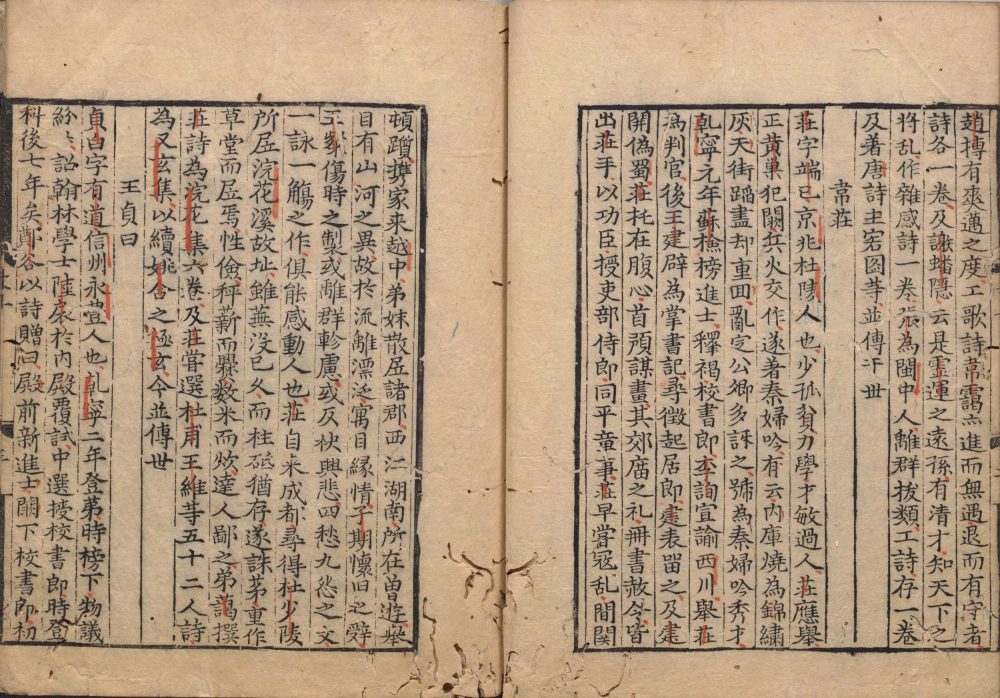 趙搏有爽邁之度工歌詩常霑杰進而無遇退而有守者
詩各一卷及謝蟠隱云是霊運之遠孫有清才知天下之
将乱作雜感詩一卷張為閩中人離群拔類工詩存一卷
及著唐詩主客圖等並傳于世
常莊
莊字端已京兆杜陵人也少孤貧力學才敏過人莊應舉
正黄巢犯闕兵火交作遂著秦婦吟有云内庫燒為錦繡
灰天街蹈盡却重回亂定公卿多訝之號為秦婦吟秀才
乾寧元年蘇檢榜進士釋褐校書郎李詢宣諭西川舉莊
為判官後王建辟為掌書記尋徵起居郎建表留之及建
開偽蜀莊托在腹心首預謀畫其郊廟之礼冊書赦令皆
出莊手以功臣授吏部侍郎同平章事莊早嘗冦乱間関
頓躓携家来越中弟妹散居諸郡西江湖南所在曽遊舉
目有山河之異故於流離漂泛寓目縁情子期懷旧之辤
王粲傷時之製或離群軫慮或反袂興悲四愁九怨之文
一詠一觴之作俱能感動人也莊自来成都尋得杜少陵
所居浣花溪故址雖蕪没已久而柱砥猶存遂誅茅重作
草堂而居焉性儉秤薪而爨数米而炊達人鄙之弟藹撰
莊詩為浣花集六卷及莊嘗選杜甫王維等五十二人詩
為又玄集以續姚合之極玄今並傳世
王貞白
貞白字有道信州永豊人也乹寧二年登第時榜下物議
紛紛詔翰林學士陸扆於内殿覆試中選授校書郎時登
科後七年矣鄭谷以詩贈曰殿前新進士闕下校書郎初